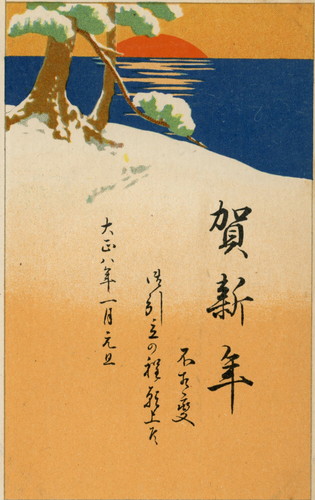 賀新年
不相變
御引立の程願上候
大正八年一月元旦